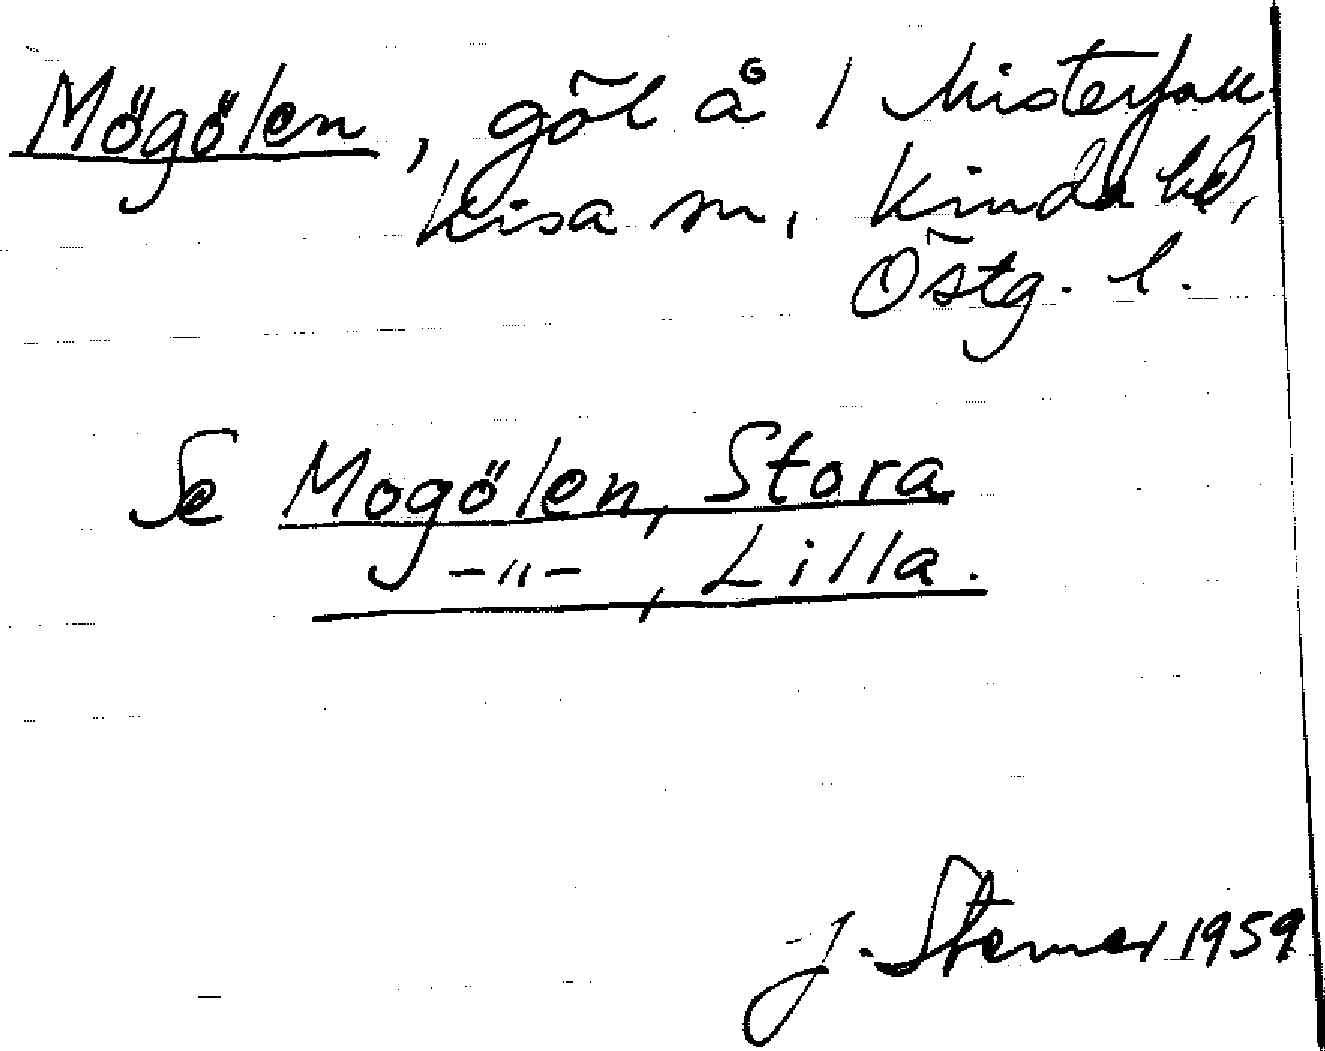 Mögölen, göl å 1 Misterfall
Kisa sn, Kinda hd,
Östg. l.
Se Mogölen, Stora
-"-, Lilla.
J. Sterner 1959